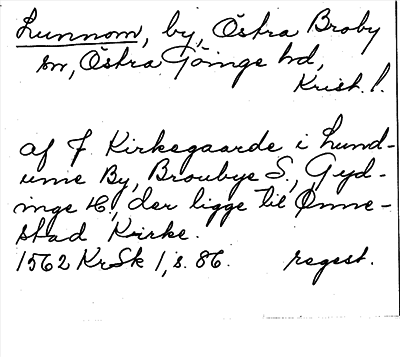 Lunnom, by, Östra Broby
sn, Östra Göinge hd,
Krist. l.
af 7 Kirkegaarde i Lund-
ume By, Broubye S., Gyd-
inge H., der ligge til Ønne-
stad Kirke.
1562 KrSk 1, s. 86. regest.